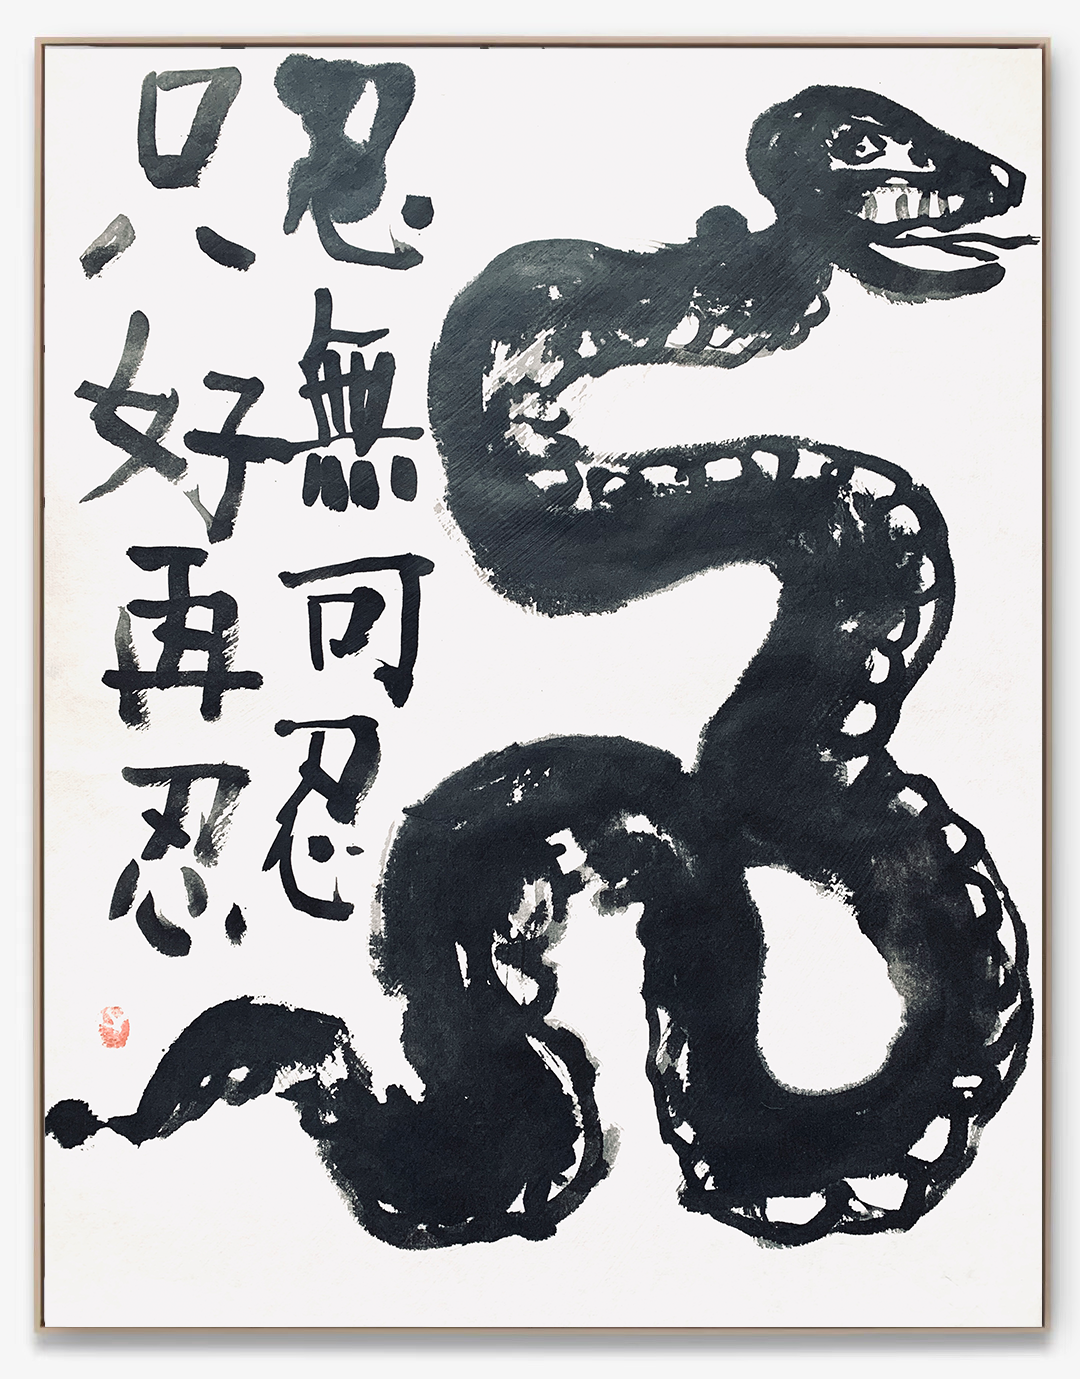 忍無可忍
只好再忍